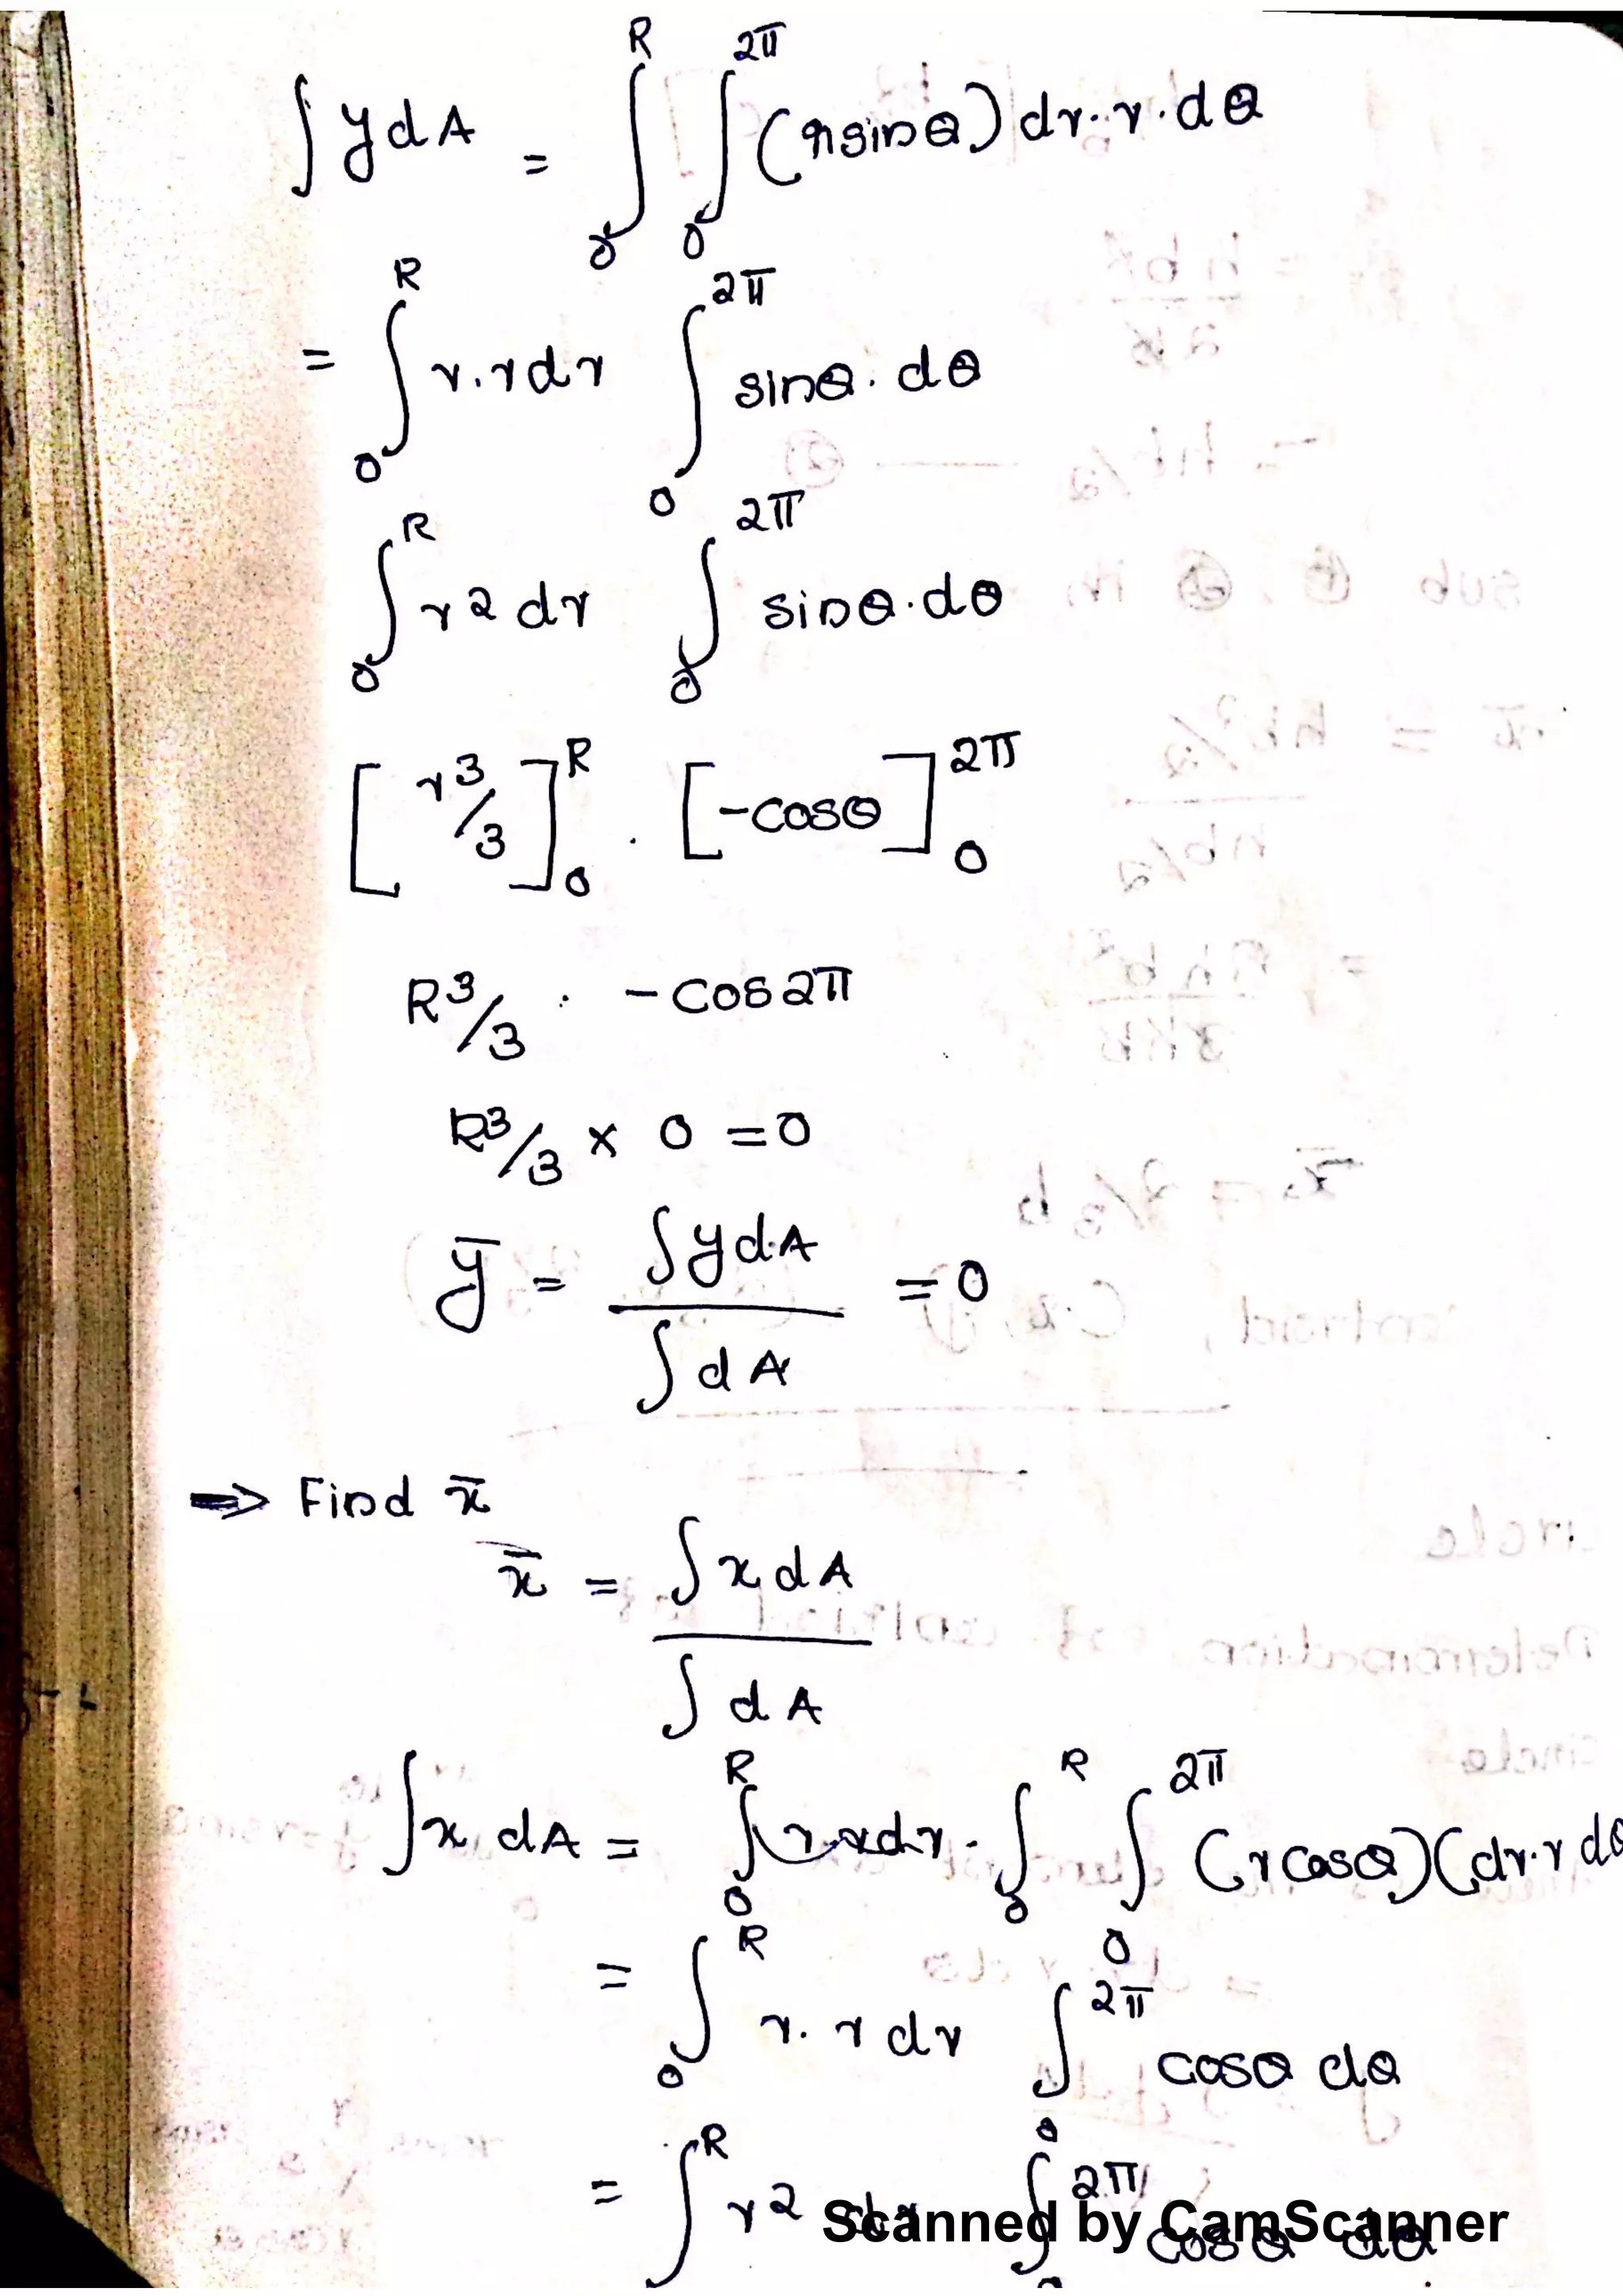 ∫ y dA = ∫₀ᴿ ∫₀^2π (r sinθ) dr. r. dθ
= ∫₀ᴿ r. r dr ∫₀^2π sinθ. dθ
∫₀ᴿ r2 dr ∫₀^2π sinθ. dθ
[r3/3]₀ᴿ . [-cosθ]₀^2π
R3/3 . -cos2π
R3/3 × 0 = 0
ȳ = ∫ydA / ∫dA = 0
⇒ Find x̄
x̄ = ∫x dA / ∫dA
∫x dA = ∫₀ᴿ r. rdr. ∫₀ᴿ ∫₀^2π (r cosθ)(dr. r dθ
= ∫₀ᴿ r. r dr ∫₀^2π cosθ dθ
= ∫ᴿ r2 dr ∫₀^2π cosθ dθ
Scanned by CamScanner